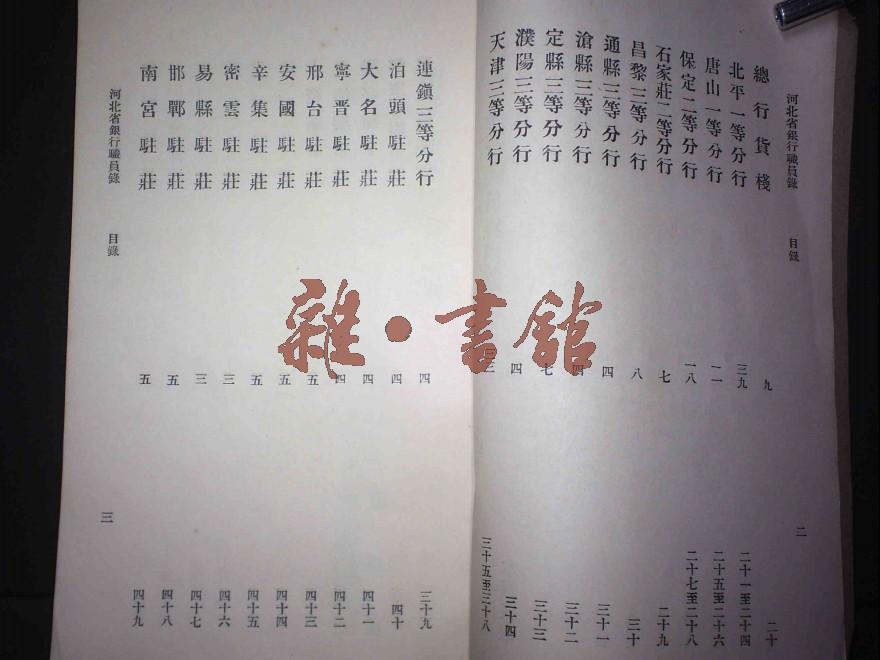 河北省銀行職員錄 目錄 二
總行貨棧 九 二十
北平一等分行 三九 二十一至二十四
唐山一等分行 二一 二十五至二十六
保定二等分行 一八 二十七至二十八
石家莊二等分行 七 二十九
昌黎三等分行 八 三十
通縣三等分行 四 三十一
滄縣三等分行 四 三十二
定縣三等分行 七 三十三
濮陽三等分行 四 三十四
天津三等分行 三十五至三十八
連鎭三等分行 四 三十九
泊頭駐莊 四 四十
大名駐莊 四 四十一
寧晋駐莊 四 四十二
邢台駐莊 五 四十三
安國駐莊 五 四十四
辛集駐莊 五 四十五
密雲駐莊 三 四十六
易縣駐莊 三 四十七
邯鄲駐莊 五 四十八
南宮駐莊 五 四十九
河北省銀行職員錄 目錄 三
雜·書館